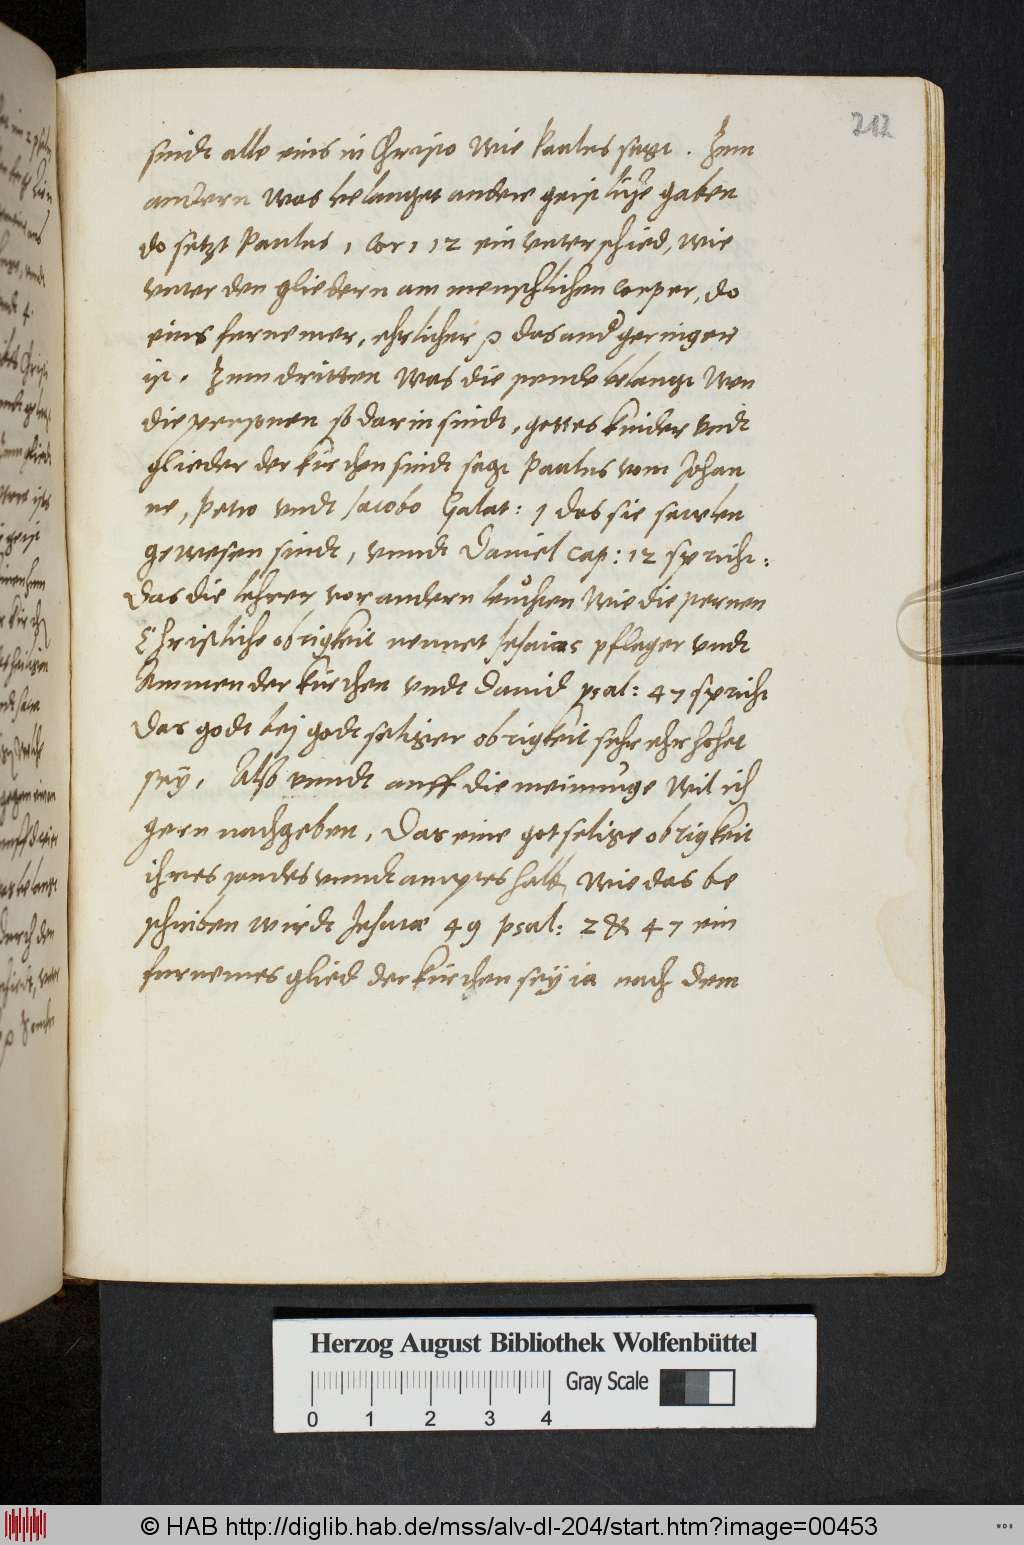 212
sindt alle eins in Christo wie Paulus sagt. Zum
andern was belanget andere geistliche gaben
do setzt Paulus 1 Cor: 12 ein vnterschied, wie
vnter den gliedern am menschlichen Corper, do
eins furnemer, ehrlicher p das and geringer
ist. Zum dritten was die stende belangt wen
die personen so darin sindt, gottes kinder vndt
glieder der kirchen sindt sagt Paulus vom Johan
ne, Petro vndt Jacobo Galat: 1 das sie sawlen
gewesen sindt, vnndt Daniel cap: 12 spricht:
Das die lehrer vor andern leuchten wie die sternen
Christliche obrigkeit nennet Jesaias pfleger vndt
Ammen der kirchen vndt Dauid psal: 47 spricht
Das godt bej godtseliger obrigkeit sehr ehrhohet
seÿ. Also vnndt auff die meinunge wil ich
gern nachgeben, Das eine gotselige obrigkeit
ihres standes vnndt amptes halb, wie das be
schriben wirdt Jesaiæ 49 psal: 2 & 47 ein
furnemes glied der kirchen seÿ ia nach dem
Herzog August Bibliothek Wolfenbüttel
Gray Scale
0 1 2 3 4
© HAB http://diglib.hab.de/mss/alv-dl-204/start.htm?image=00453